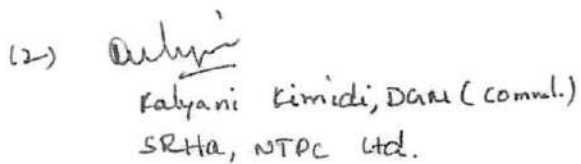 (2)
Kalyani Kimidi, DGM (Comml.)
SRHQ, NTPC Ltd.